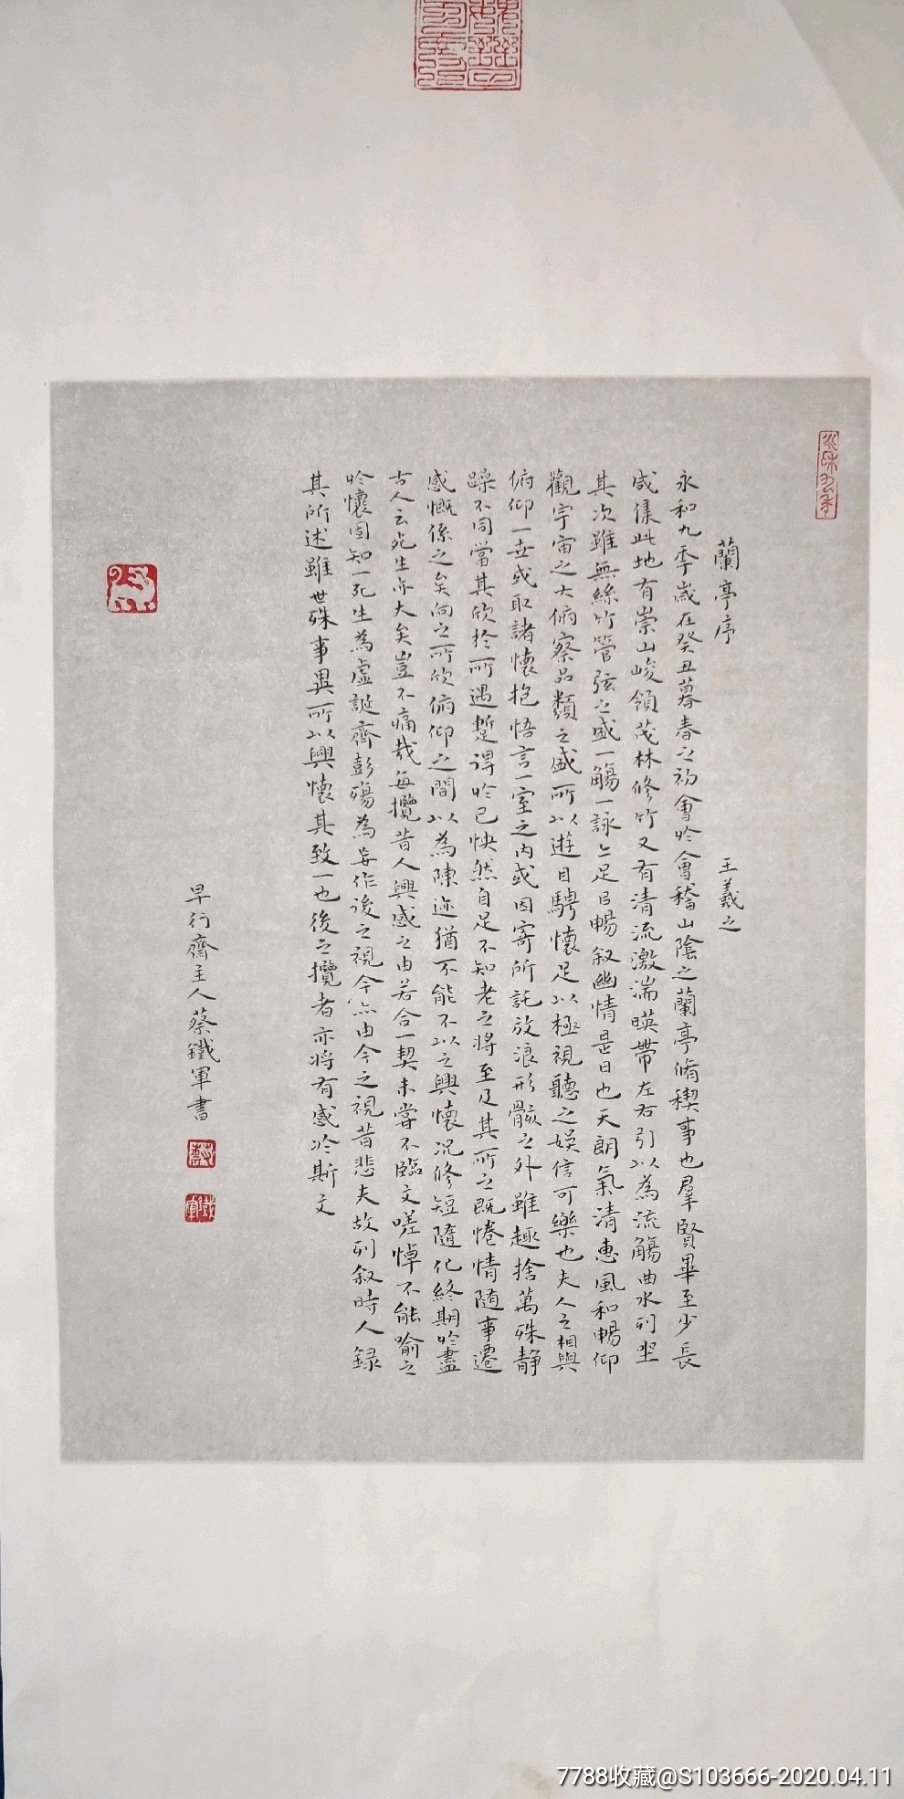 蘭亭序
王羲之
永和九年歲在癸丑暮春之初會於會稽山陰之蘭亭脩稧事也羣賢畢至少長
咸集此地有崇山峻領茂林修竹又有清流激湍暎帶左右引以為流觴曲水列坐
其次雖無絲竹管弦之盛一觴一詠亦足以暢叙幽情是日也天朗氣清惠風和暢仰
觀宇宙之大俯察品類之盛所以遊目騁懷足以極視聽之娛信可樂也夫人之相與
俯仰一世或取諸懷抱悟言一室之內或因寄所託放浪形骸之外雖趣捨萬殊靜
躁不同當其欣於所遇蹔得於己怏然自足不知老之將至及其所之既惓情隨事遷
感慨係之矣向之所欣俯仰之間以為陳迹猶不能不以之興懷況修短隨化終期於盡
古人云死生亦大矣豈不痛哉每攬昔人興感之由若合一契未嘗不臨文嗟悼不能喻之
於懷固知一死生為虛誕齊彭殤為妄作後之視今亦由今之視昔悲夫故列叙時人録
其所述雖世殊事異所以興懷其致一也後之攬者亦將有感於斯文
早行齋主人蔡鐵軍書
7788收藏@S103666-2020.04.11